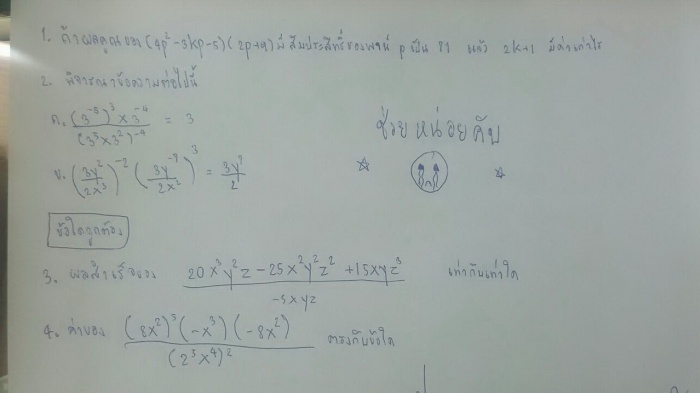 1. ถ้าผลคูณของ (4p² - 3kp - 5)(2p + 4) มีสัมประสิทธิ์ของพจน์ p เป็น 51 แล้ว 2k+1 มีค่าเท่าไร
2. พิจารณาข้อความต่อไปนี้
ก. (3⁻⁵)³ × 3⁻⁴ / (3³ × 3²)⁻⁴ = 3
ช่วยหน่อยคับ
ข. (3y²/2x³)⁻² (3y⁻⁹/2x²)³ = 3y⁷/2
ข้อใดถูกต้อง
3. ผลสำเร็จของ 20x³y²z - 25x²y²z² + 15xyz³ / -5xyz เท่ากับเท่าใด
4. ค่าของ (8x²)³(-x³)(-8x²) / (2³x⁴)² ตรงกับข้อใด